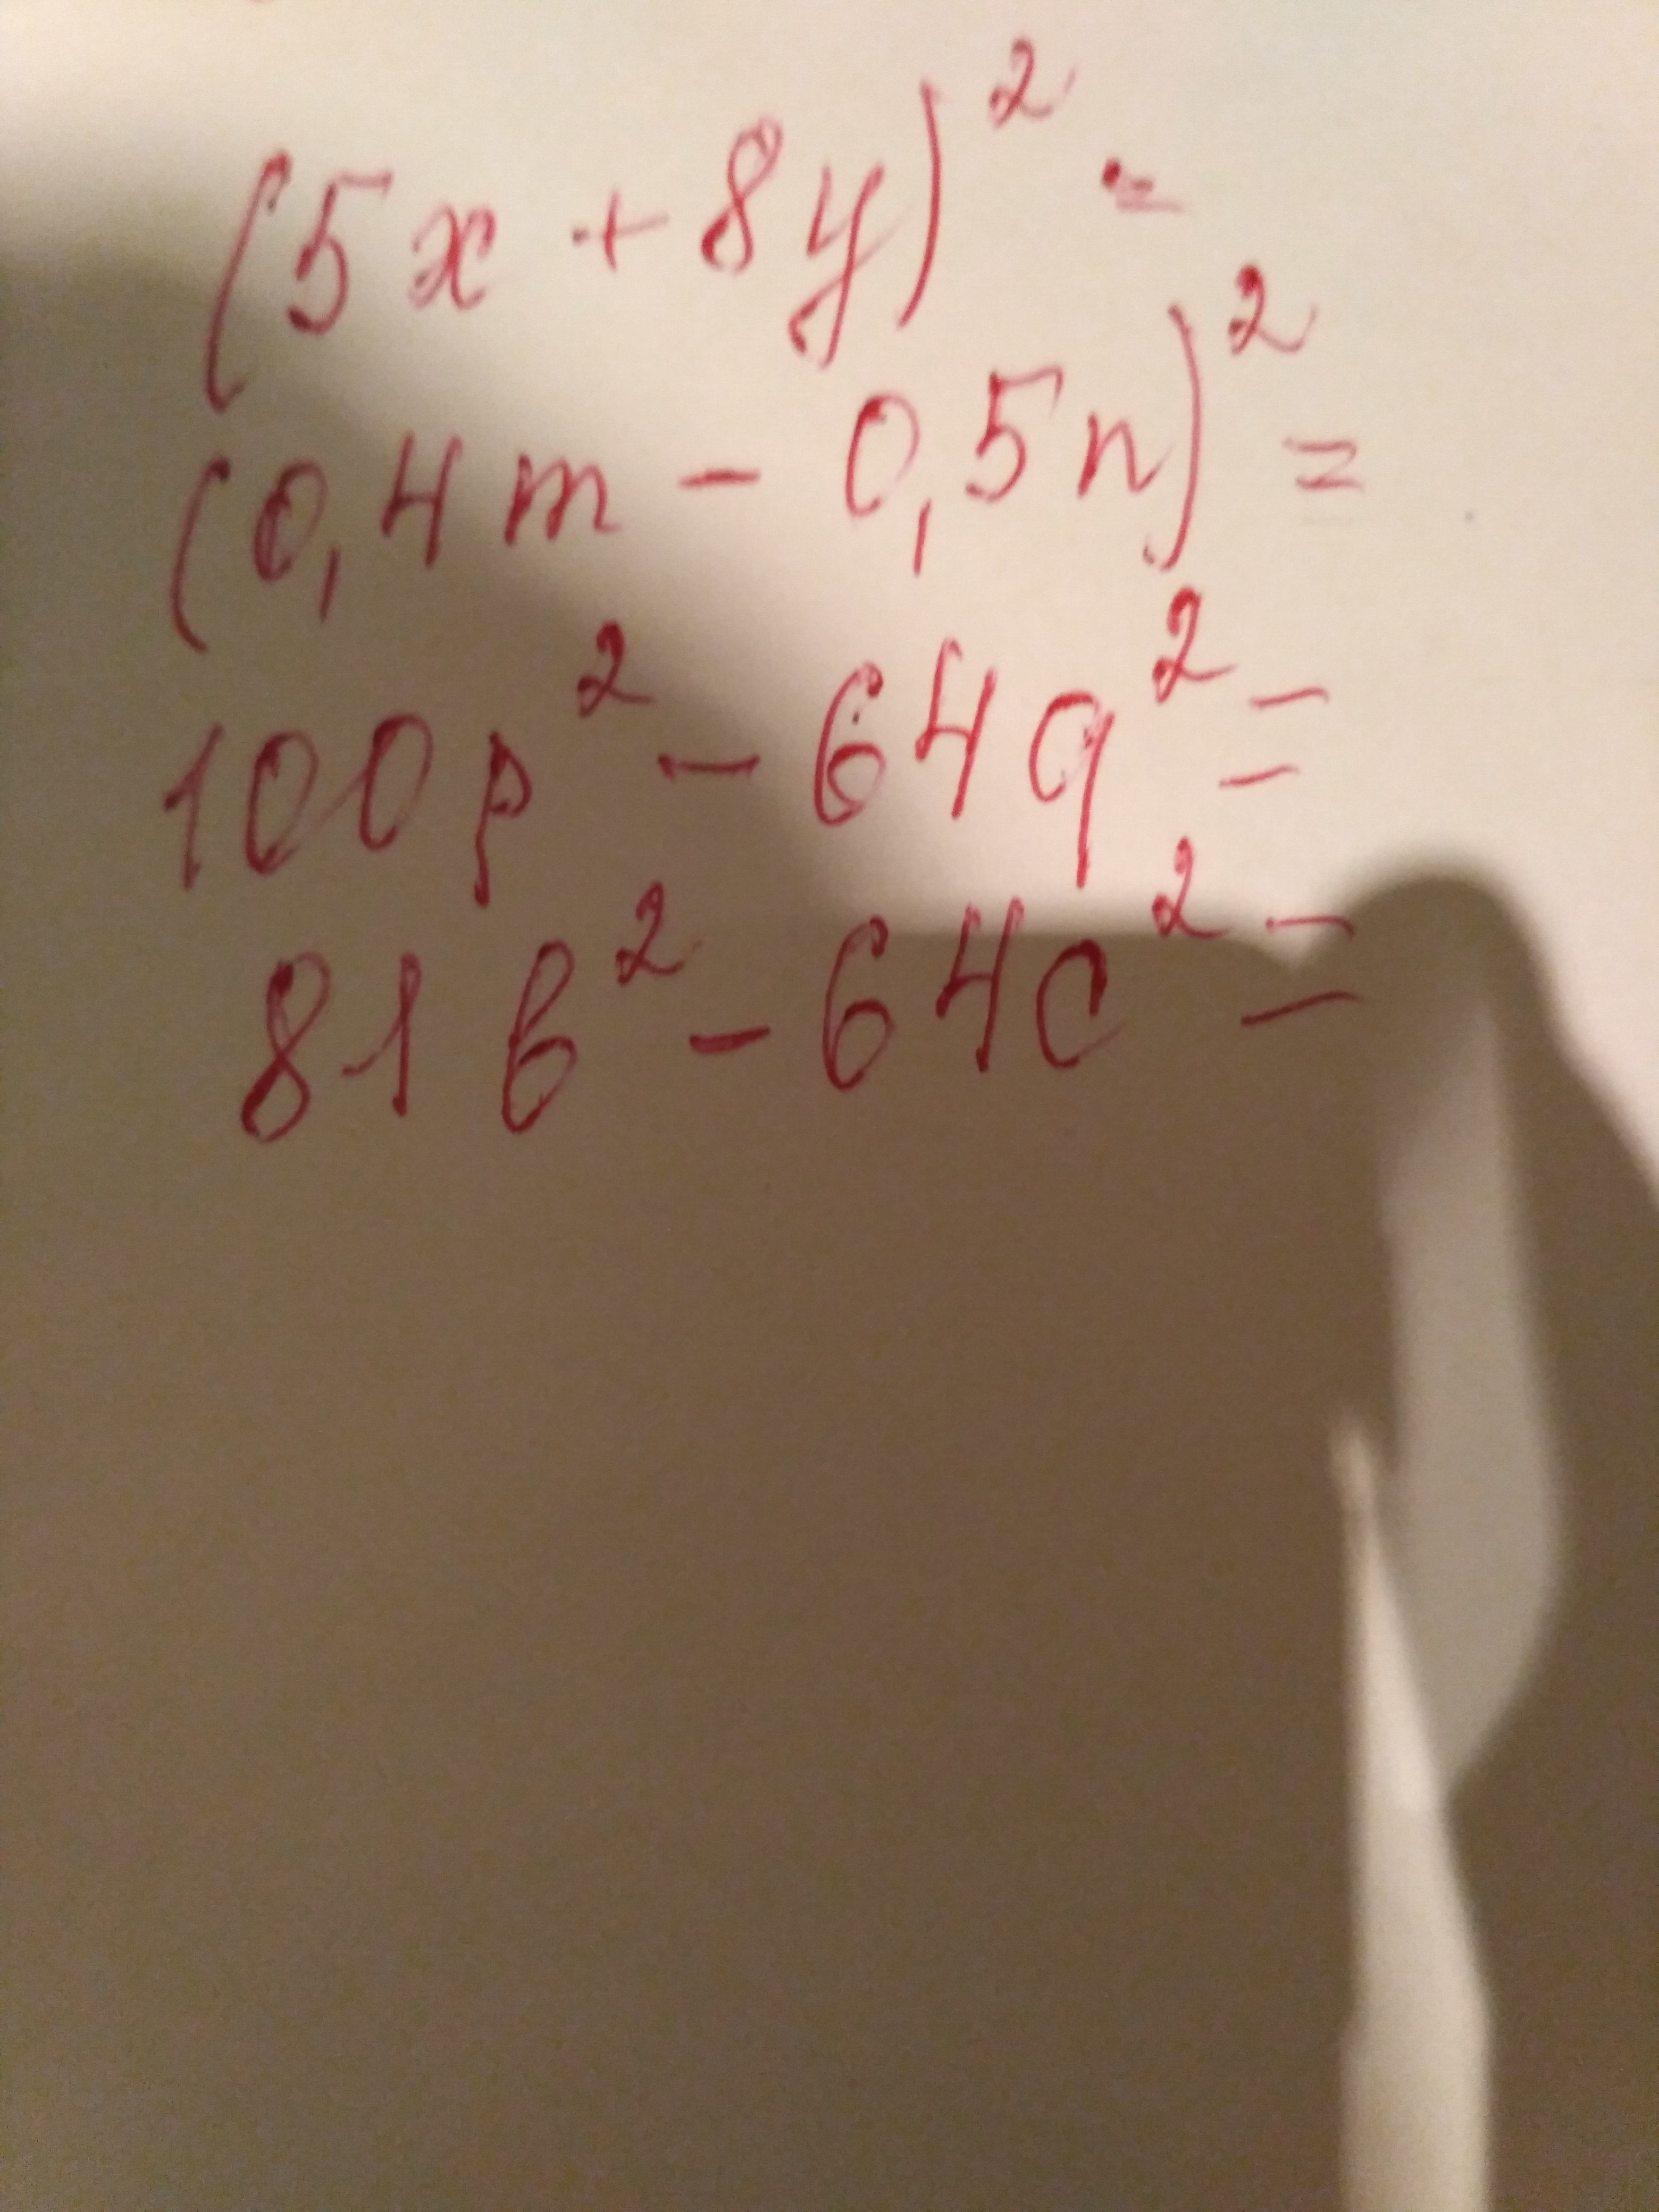 (5x + 8y)² =
(0,4m - 0,5n)² =
100p² - 64q² =
81b² - 64c² =